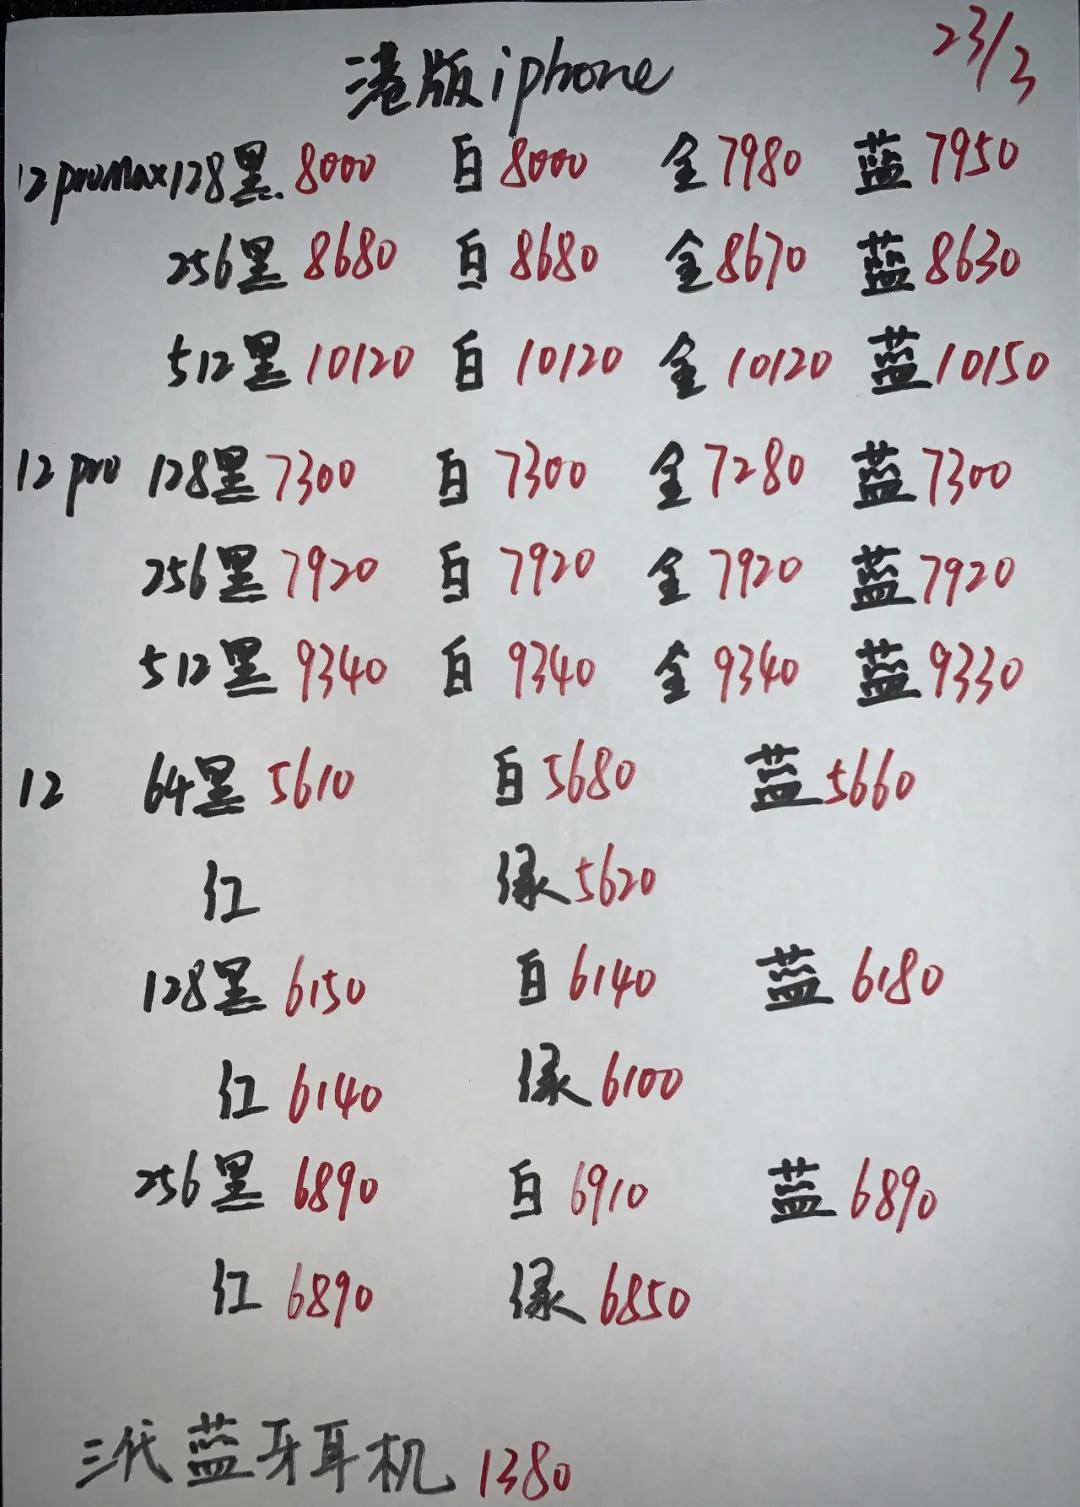 港版iphone 23/3
12promax128黑 8000 白 8000 金 7980 蓝 7950
256黑 8680 白 8680 金 8670 蓝 8630
512黑 10120 白 10120 金 10120 蓝 10150
12 pro 128黑 7300 白 7300 金 7280 蓝 7300
256黑 7920 白 7920 金 7920 蓝 7920
512黑 9340 白 9340 金 9340 蓝 9330
12 64黑 5610 白 5680 蓝 5660
红 绿 5620
128黑 6150 白 6140 蓝 6180
红 6140 绿 6100
256黑 6890 白 6910 蓝 6890
红 6890 绿 6850
三代蓝牙耳机 1380